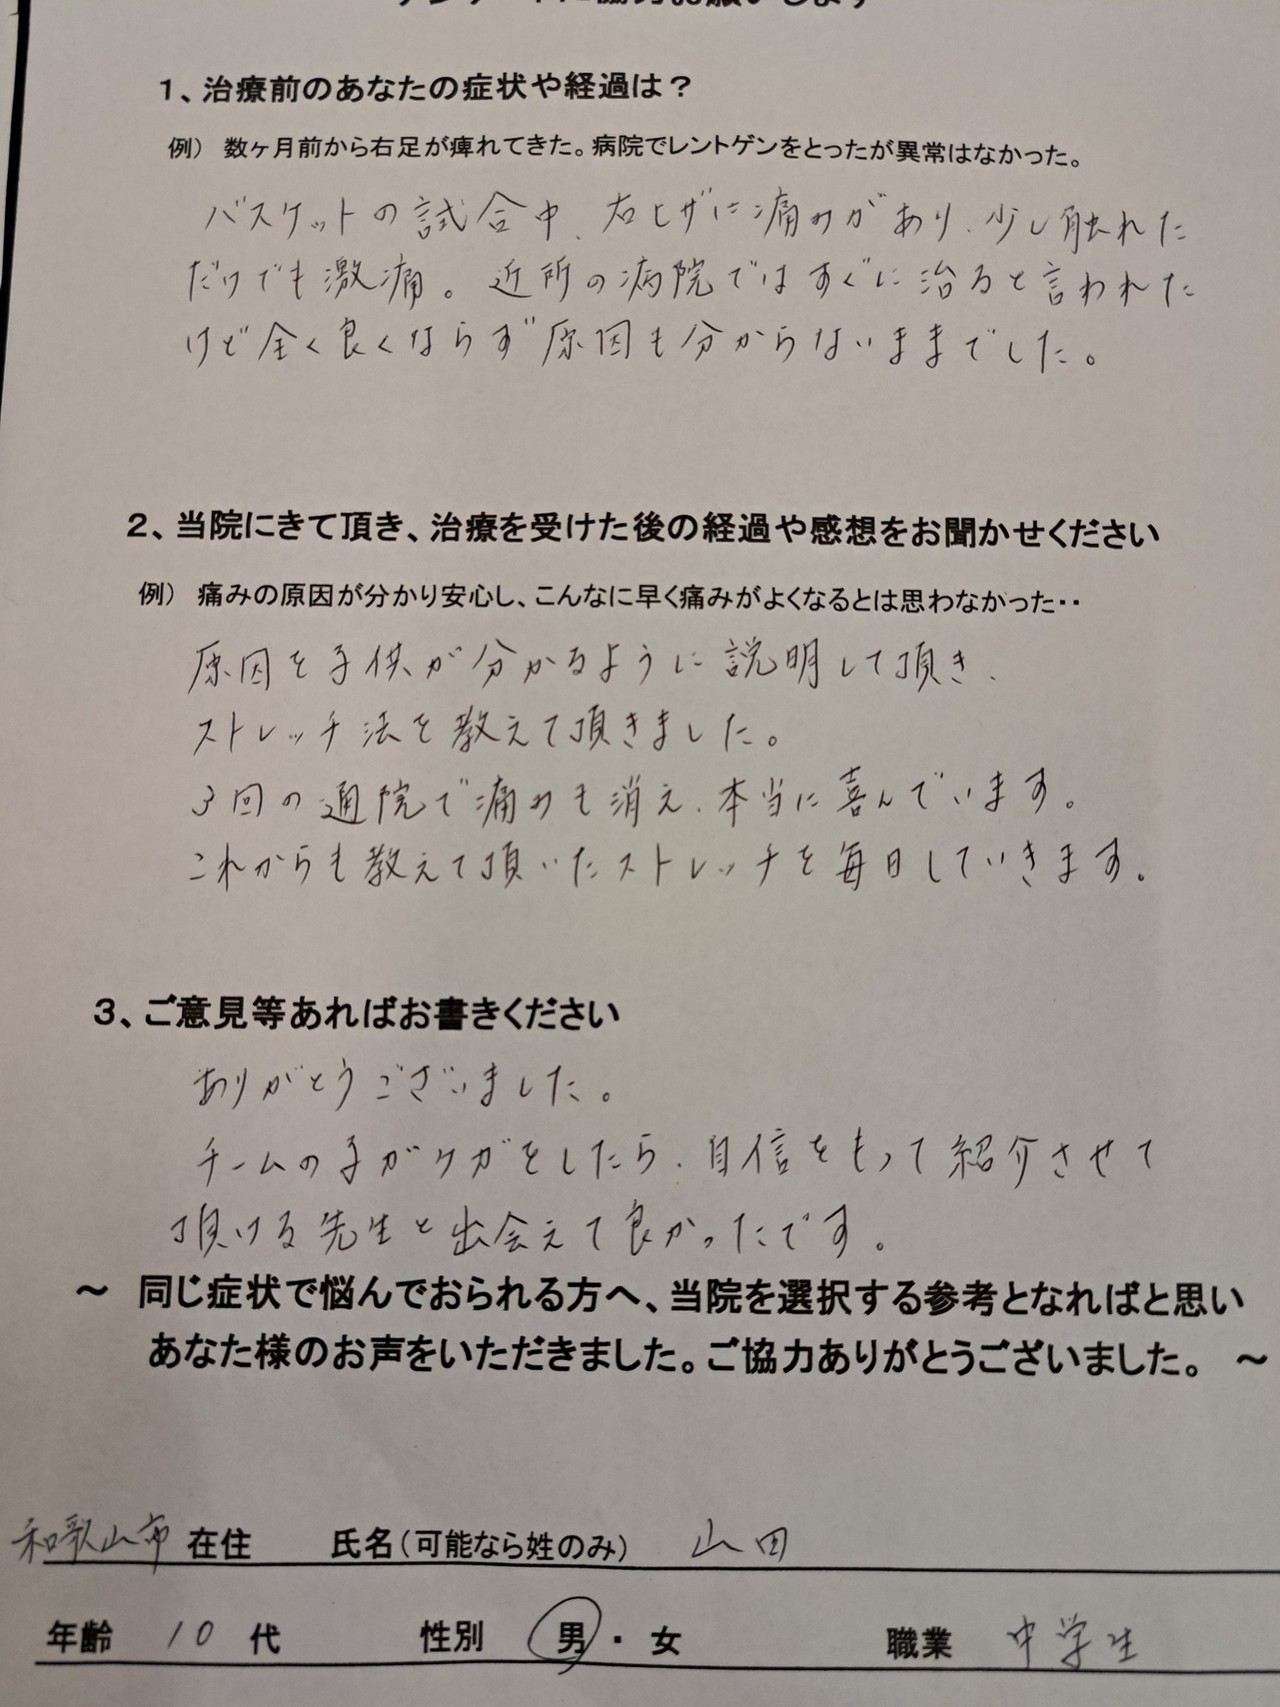 アンケートに協力お願いします
1、治療前のあなたの症状や経過は？
例） 数ヶ月前から右足が痺れてきた。病院でレントゲンをとったが異常はなかった。
バスケットの試合中、右ヒザに痛みがあり、少し触れた
だけでも激痛。近所の病院ではすぐに治ると言われた
けど全く良くならず原因も分からないままでした。
2、当院にきて頂き、治療を受けた後の経過や感想をお聞かせください
例） 痛みの原因が分かり安心し、こんなに早く痛みがよくなるとは思わなかった・・
原因を子供が分かるように説明して頂き、
ストレッチ法を教えて頂きました。
3回の通院で痛みも消え、本当に喜んでいます。
これからも教えて頂いたストレッチを毎日していきます。
3、ご意見等あればお書きください
ありがとうございました。
チームの子がケガをしたら、自信をもって紹介させて
頂ける先生と出会えて良かったです。
～ 同じ症状で悩んでおられる方へ、当院を選択する参考となればと思い
あなた様のお声をいただきました。ご協力ありがとうございました。 ～
和歌山市 在住 氏名（可能なら姓のみ） 山田
年齢 10 代 性別 男・女 職業 中学生